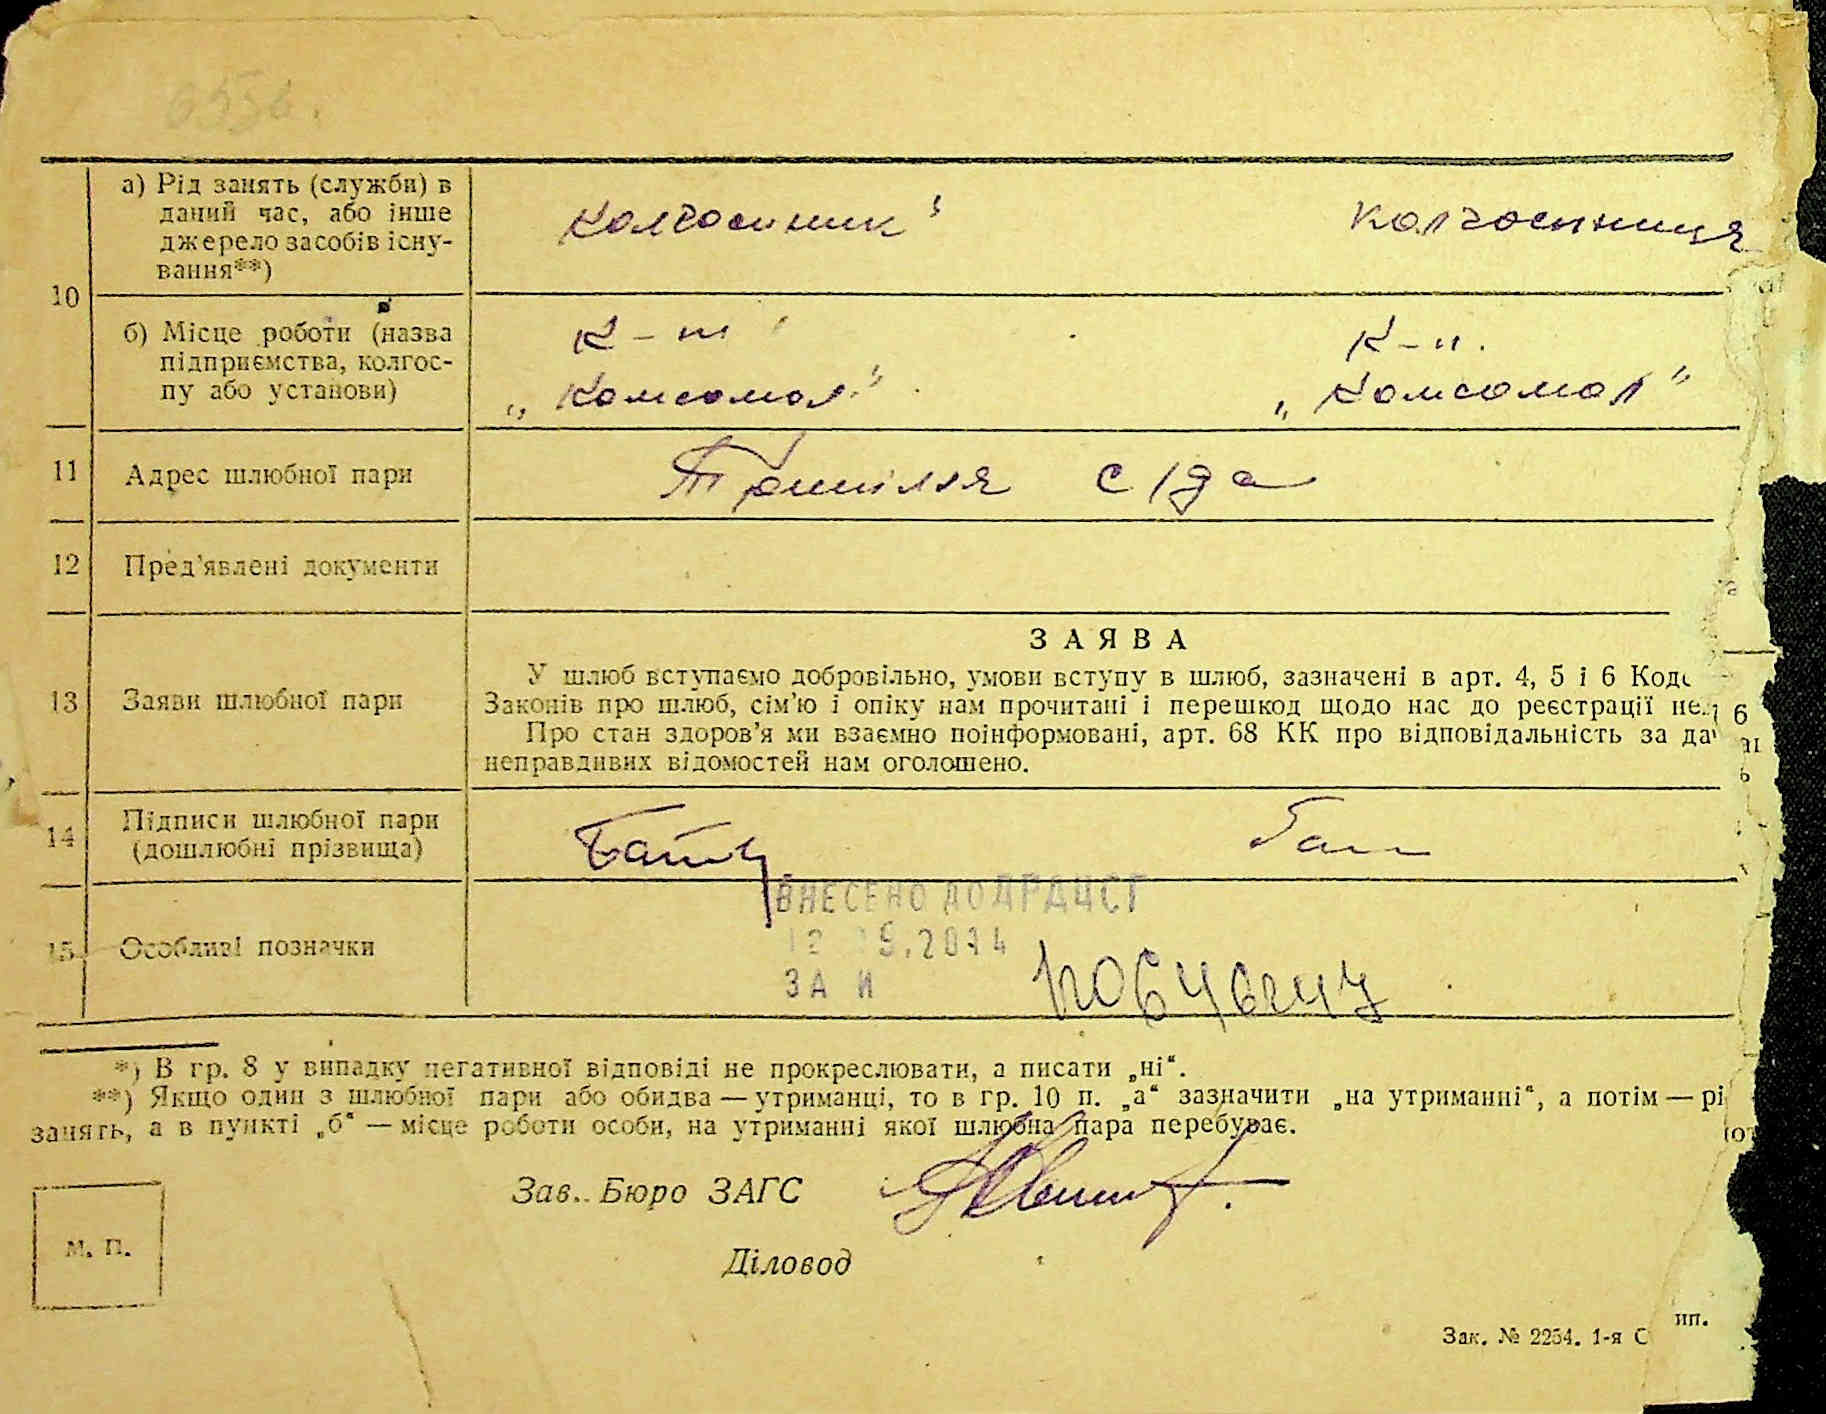 6556.
10
а) Рід занять (служби) в
даний час, або інше
джерело засобів існу-
вання**)
колгоспник
колгоспниця
б) Місце роботи (назва
підприємства, колгос-
пу або установи)
К-п
К-п.
„Комсомол"
„Комсомол"
11 Адрес шлюбної пари
с/да
12 Пред'явлені документи
13 Заяви шлюбної пари
ЗАЯВА
У шлюб вступаємо добровільно, умови вступу в шлюб, зазначені в арт. 4, 5 і 6
Законів про шлюб, сім'ю і опіку нам прочитані і перешкод щодо нас до реєстрації
Про стан здоров'я ми взаємно поінформовані, арт. 68 КК про відповідальність за
неправдивих відомостей нам оголошено.
14 Підписи шлюбної пари
(дошлюбні прізвища)
15 Особливі позначки
ВНЕСЕНО ДО ДРАЦСГ
ЗА И
*) В гр. 8 у випадку негативної відповіді не прокреслювати, а писати „ні“.
**) Якщо один з шлюбної пари або обидва — утриманці, то в гр. 10 п. „а“ зазначити „на утриманні“, а потім — рі
занять, а в пункті „б“ — місце роботи особи, на утриманні якої шлюбна пара перебуває.
Зав. Бюро ЗАГС
М. П.
Діловод
Зак. № 2254. 1-я